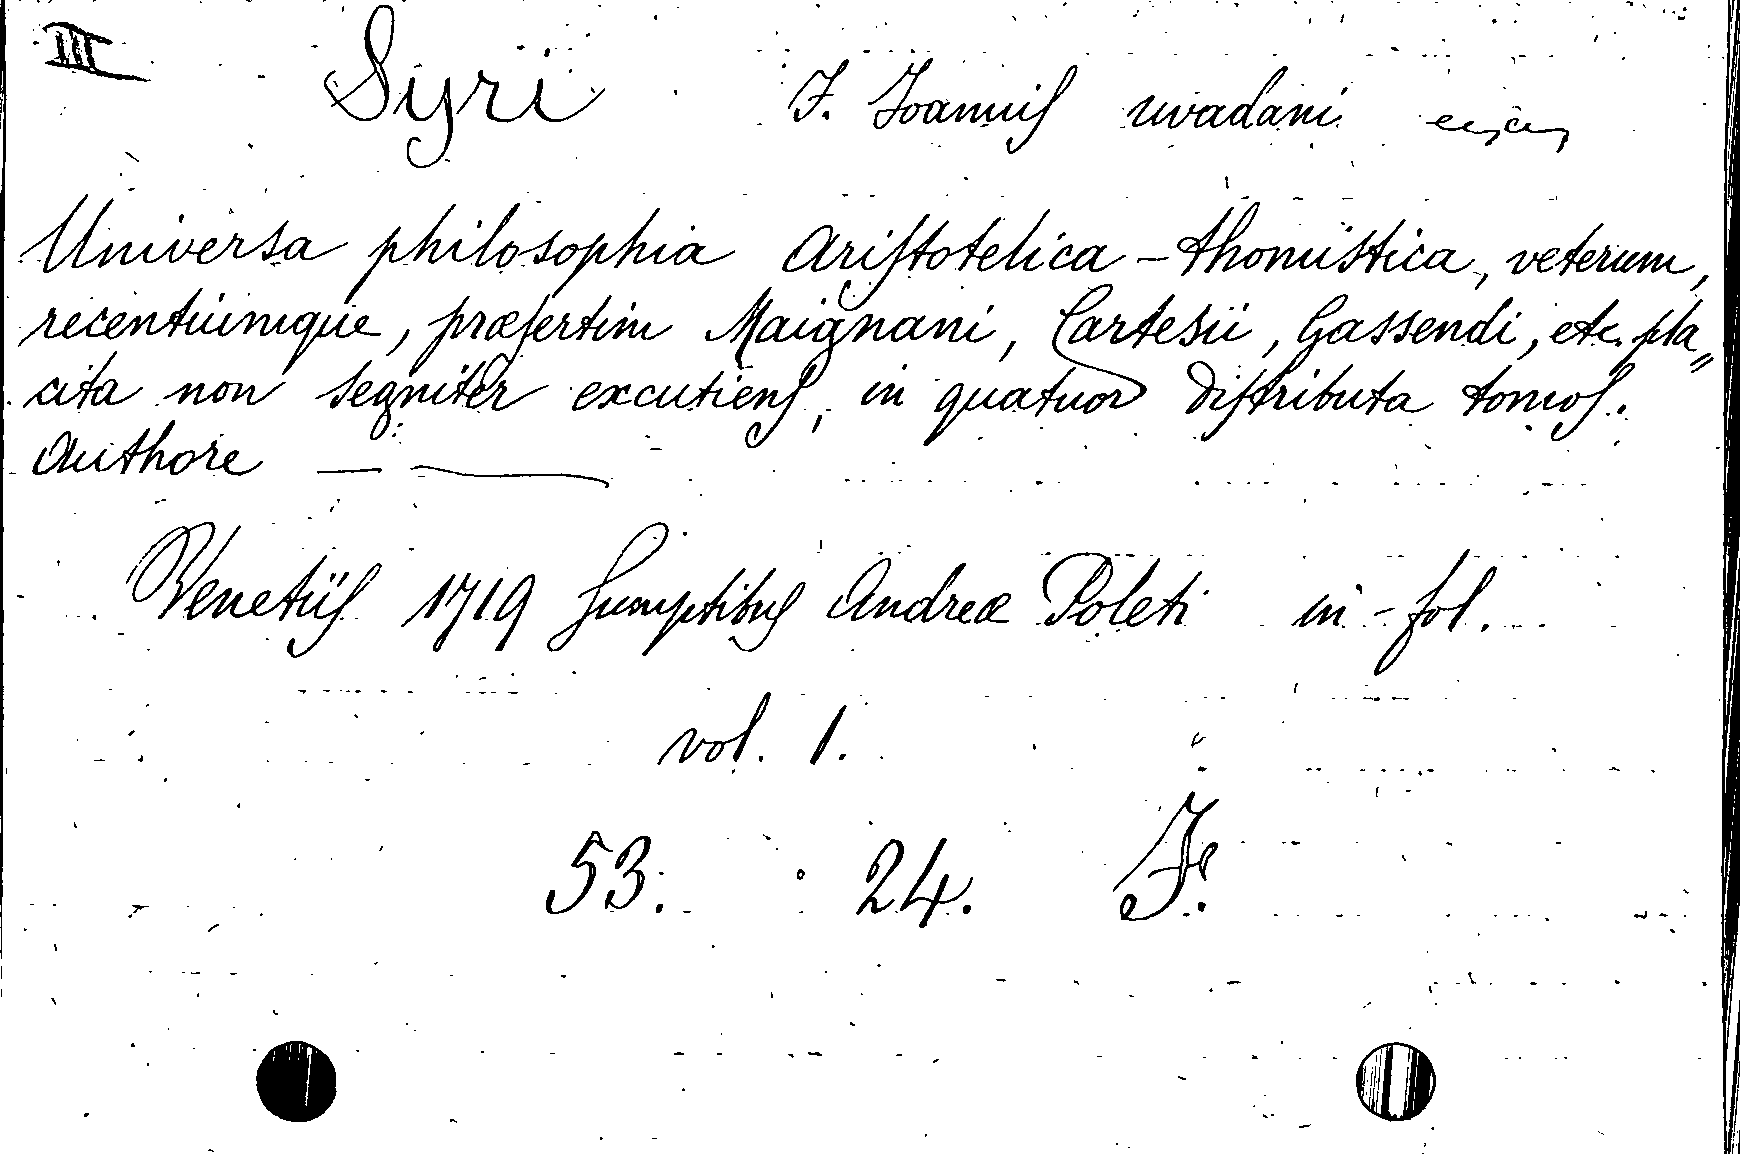 III
Syri J. Joannis uvadani
Universa philosophia Aristotelica - thomistica, veterum,
recentiumque, præsertim Maignani, Cartesii, Gassendi, etc. pla„
cita non segniter excutiens, in quatuor distributa tomos.
Authore —
Venetiis 1719 sumptibus Andreæ Poleti in-fol.
vol. 1.
53. 24. F.